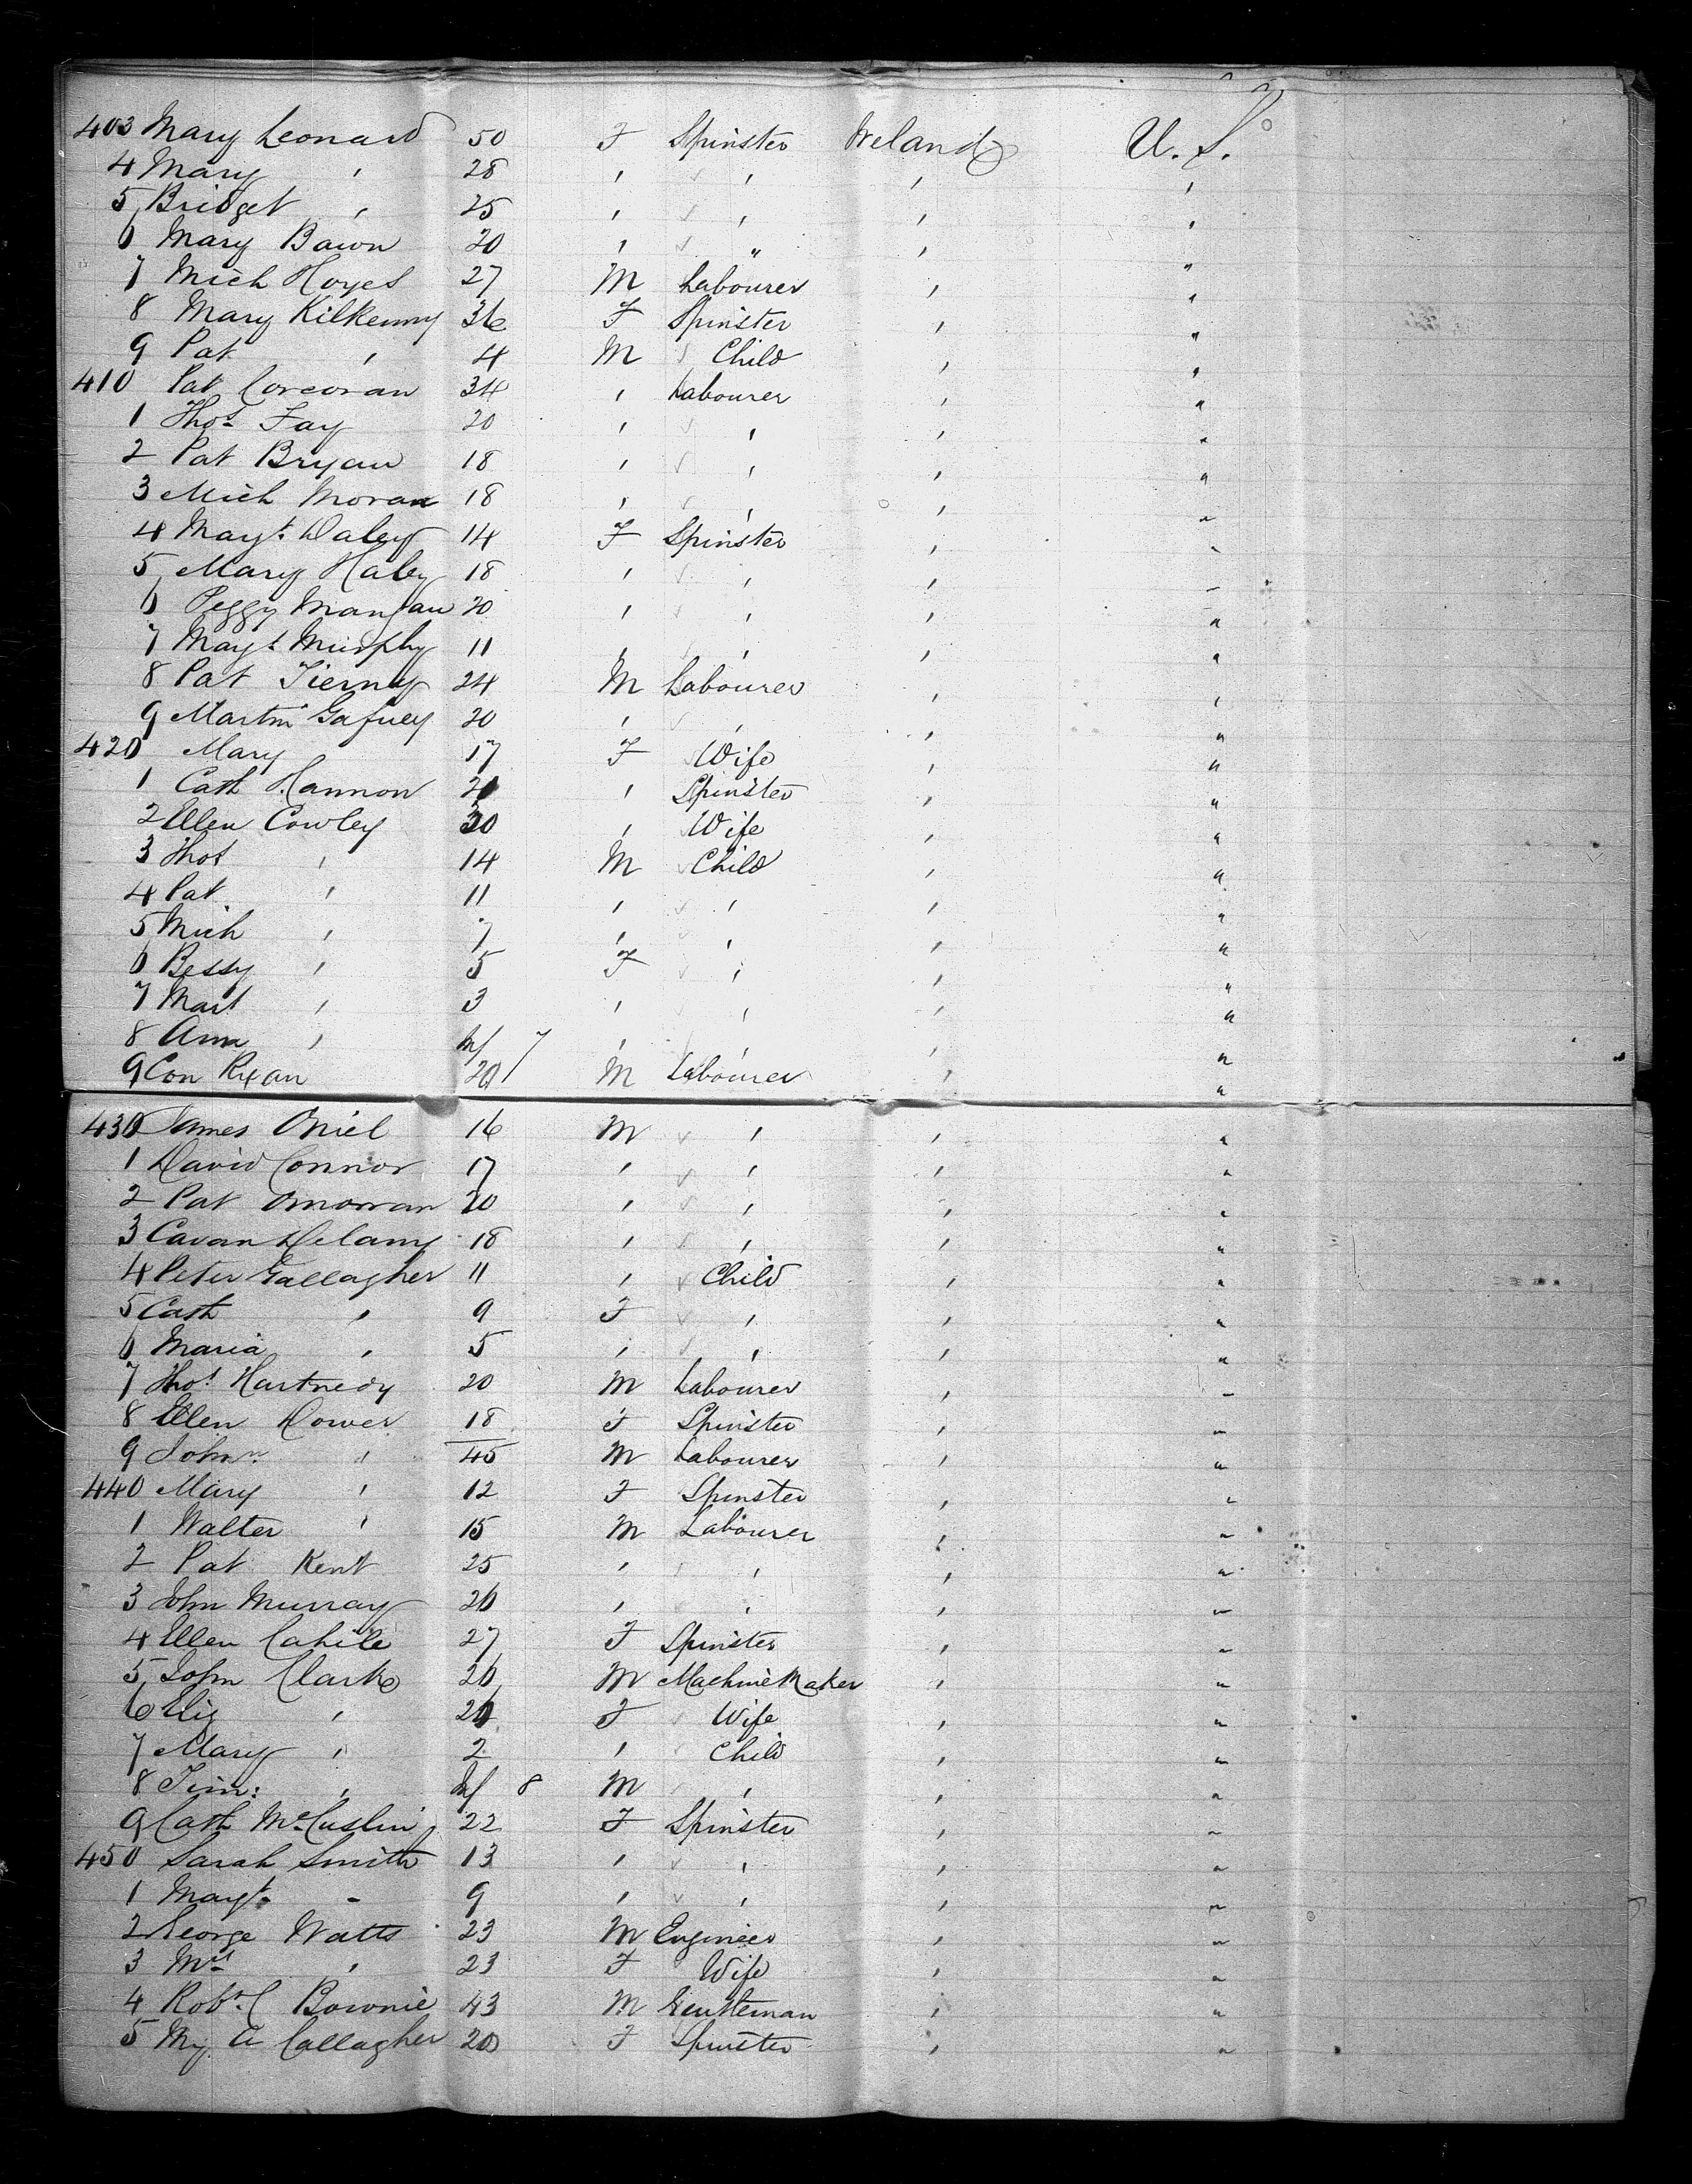 403 Mary Leonard 50 F Spinster Ireland U. S.
4 Mary " 28 " " " "
5 Bridget " 25 " " " "
6 Mary Bawn 20 " " " "
7 Mich Hoyes 27 M Labourer " "
8 Mary Kilkenny 36 F Spinster " "
9 Pat " 4 M Child " "
410 Pat Corcoran 34 " Labourer " "
1 Thos Fay 20 " " " "
2 Pat Bryan 18 " " " "
3 Mich Moran 18 " " " "
4 Mayt. Daley 14 F Spinster " "
5 Mary Haley 18 " " " "
6 Peggy Mangan 20 " " " "
7 Mayt Murphy 11 " " " "
8 Pat Tierny 24 M Labourer " "
9 Martin Gafney 20 " " " "
420 Mary 17 F Wife " "
1 Cath Hannon 20 " Spinster " "
2 Ellen Cowley 30 " Wife " "
3 Thos " 14 M Child " "
4 Pat " 11 " " " "
5 Mich " 7 " " " "
6 Bessy " 5 F " " "
7 Mart " 3 " " " "
8 Ann " Inf 7 " " " "
9 Con Ryan 20 M Labourer " "
430 James Oniel 16 M " " "
1 David Connor 17 " " " "
2 Pat Omorran 20 " " " "
3 Cavan Delany 18 " " " "
4 Peter Gallagher 11 " Child " "
5 Cath " 9 F " " "
6 Maria " 5 " " " "
7 Thos. Hartnedy 20 M Labourer " "
8 Ellen Dower 18 F Spinster " "
9 John " 45 M Labourer " "
440 Mary " 12 F Spinster " "
1 Walter " 15 M Labourer " "
2 Pat Kent 25 " " " "
3 John Murray 26 " " " "
4 Ellen Cahill 27 F Spinster " "
5 John Clarke 26 M Machine Maker " "
6 Eliz " 26 F Wife " "
7 Mary " 2 " Child " "
8 Jim: " Inf 8 M " " "
9 Cath McCuslin 22 F Spinster " "
450 Sarah Smith 13 " " " "
1 Mayt. " 9 " " " "
2 George Watts 23 M Engineer " "
3 Mrs " 23 F Wife " "
4 Robt. C Bownie 43 M Gentleman " "
5 My. A Callagher 20 F Spinster " "